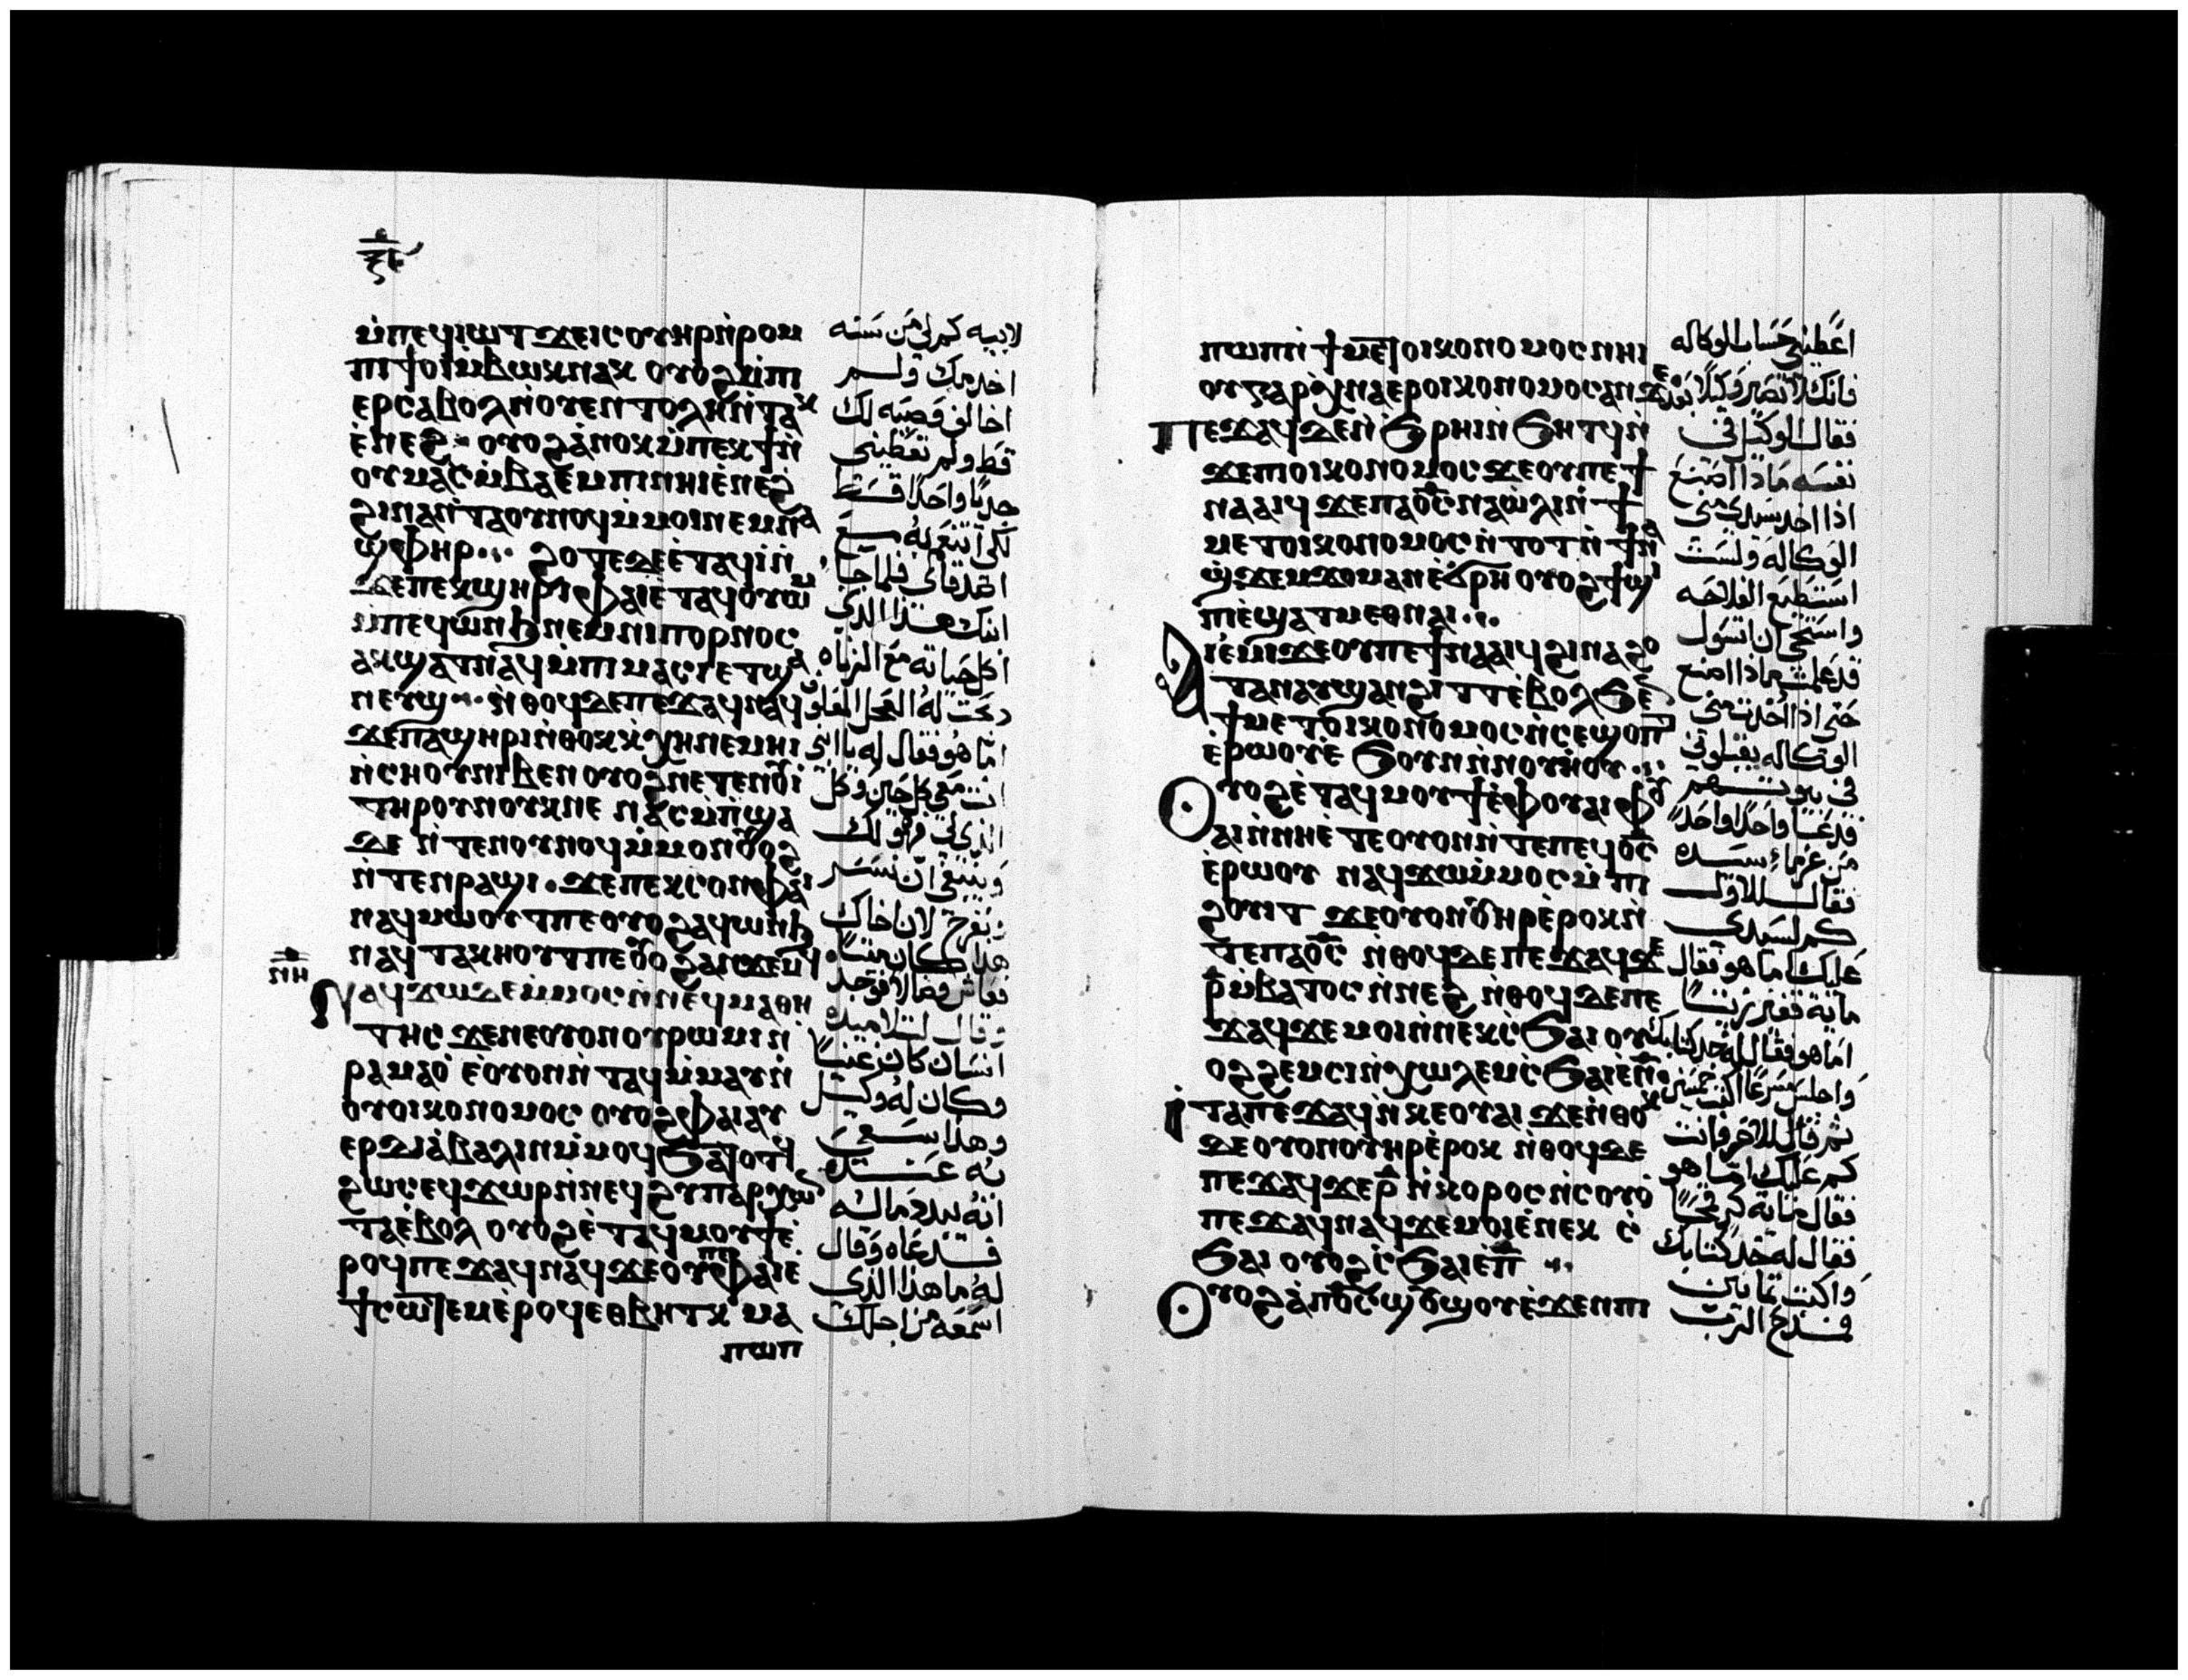 ⲙ̀ⲡⲉϥⲓⲱⲧ ϫⲉⲓⲥⲟⲩⲏⲣⲛ̀ⲣⲟⲙ
ⲡⲓϯⲟⲓⲙ̀ⲃⲱⲕⲛⲁⲕ ⲟⲩⲟϩⲙ̀ⲡⲓ
ⲉⲣⲥⲁⲃⲟⲗⲛ̀ⲟⲩⲉⲛⲧⲟⲗⲏⲛ̀ⲧⲁⲕ
ⲉ̀ⲛⲉϩ ⲟⲩⲟϩⲁ̀ⲛⲟⲕⲙ̀ⲡⲉⲕϯⲛ̀
ⲟⲩⲙⲁⲥⲙ̀ⲃⲁⲉⲙⲡⲓⲛⲏⲓⲉ̀ⲛⲉϩ
ϩⲓⲛⲁⲛ̀ⲧⲁⲟⲩⲛⲟϥⲙ̀ⲙⲟⲓⲛⲉⲙⲛⲁ
ϣⲫⲏⲣ ϩⲟⲧⲉⲇⲉⲉ̀ⲧⲁϥⲓ̀ⲛ̀
ϫⲉⲡⲉⲕϣⲏⲣⲓⲫⲁⲓⲉ̀ⲧⲁϥⲟⲩⲱⲙ
ⲙ̀ⲡⲉϥⲱⲛϧⲛⲉⲙⲛⲓⲡⲟⲣⲛⲟⲥ
ⲁⲕϣⲁⲧⲛⲁϥⲙ̀ⲡⲓⲙⲁⲥⲓⲉⲧϣⲁ
ⲛⲉⲩϣ ⲛ̀ⲑⲟϥⲇⲉⲡⲉϫⲁϥⲛⲁϥ
ϫⲉⲡⲁϣⲏⲣⲓⲛ̀ⲑⲟⲕⲕ̀ⲭⲏⲛⲉⲙⲏⲓ
ⲛ̀ⲥⲏⲟⲩⲛⲓⲃⲉⲛⲟⲩⲟϩⲛⲉⲧⲉⲛⲟⲩⲓ
ⲧⲏⲣⲟⲩⲛⲟⲩⲕⲛⲉ ⲛⲁⲥⲙ̀ⲡϣⲁ
ⲇⲉ ⲛ̀ⲧⲉⲛⲟⲩⲛⲟϥⲙ̀ⲙⲟⲛⲟⲩⲟϩ
ⲛ̀ⲧⲉⲛⲣⲁϣⲓ ϫⲉⲡⲉⲕⲥⲟⲛⲫⲁⲓ
ⲛⲁϥⲙⲱⲟⲩⲧⲡⲉⲟⲩⲟϩⲁϥⲱⲛϧ
ⲛⲁϥⲧⲁⲕⲏⲟⲩⲧⲡⲉⲟⲩⲟϩⲁⲛϫⲉⲙϥ
ⲛⲏ
ⲛⲁϥϫⲱⲇⲉⲙ̀ⲙⲟⲥⲛ̀ⲛⲉϥⲙⲁⲑⲏ
ⲧⲏⲥ ϫⲉⲛⲉⲟⲩⲟⲛⲟⲩⲣⲱⲙⲓⲛ̀
ⲣⲁⲙⲁⲟ̀ ⲉ̀ⲟⲩⲟⲛⲛ̀ⲧⲁϥⲙ̀ⲙⲁⲩⲛ̀
ⲟⲩⲟⲓⲕⲟⲛⲟⲙⲟⲥ ⲟⲩⲟϩⲫⲁⲓⲁⲩ
ⲉⲣⲇⲓⲁⲃⲁⲗⲓⲛⲙ̀ⲙⲟϥϧⲁⲧⲟⲧϥ
ϩⲱⲥⲉϥϫⲱⲣⲛ̀ⲛⲉϥϩⲩⲡⲁⲣⲭⲟⲛ
ⲧⲁⲉ̀ⲃⲟⲗ ⲟⲩⲟϩⲉ̀ⲧⲁϥⲙⲟⲩϯⲉ̀
ⲣⲟϥⲡⲉϫⲁϥⲛⲁϥϫⲉⲟⲩⲡⲉⲫⲁⲓⲉ
ϯⲥⲱⲧⲉⲙⲉ̀ⲣⲟϥⲉⲑⲃⲏⲧⲕ ⲙⲁ
ⲡⲱⲡ
لابيه كم لي من سنه
اخدمك ولم
اخالف وصيه لك
قط ولم تعطيني
جديا واحدا قط
لكي اتنعم به مع
اصدقاي فلما جا
ابنك هذا الذي
اكل حياته مع الزناه
ذبحت له العجل المعلوف
اما هو فقال له يا ابني
انت معي كل حين وكل
الذي لي فهو لك
وينبغي ان نسر
ونفرح لان اخاك
هذا كان ميتا
فعاش وضالا فوجد
وقال لتلاميده
انسان كان غنيا
وكان له وكيل
وهذا سعي
به عنده
انه يبدد ماله
فدعاه وقال
له ما هذا الذي
اسمعه من اجلك
ⲡⲱⲡⲛ̀ ϯⲙⲉⲧⲟⲓⲕⲟⲛⲟⲙⲟⲥⲛⲏⲓ
ⲟⲩⲅⲁⲣⲭ̀ⲛⲁⲉⲣⲟⲓⲕⲟⲛⲟⲙⲟⲥⲁⲛϫⲉ
ⲡⲉϫⲁϥⲇⲉⲛ̀ϧⲣⲏⲓⲛ̀ϧⲏⲧϥⲛ̀
ϫⲉⲡⲓⲟⲓⲕⲟⲛⲟⲙⲟⲥϫⲉⲟⲩⲡⲉϯ
ⲛⲁⲁⲓϥ ϫⲉⲡⲁⲟ̅ⲥ̅ⲛⲁⲱ̀ⲗⲓⲛ̀ϯ
ⲙⲉⲧⲟⲓⲕⲟⲛⲟⲙⲟⲥⲛ̀ⲧⲟⲧⲛ̀ϯⲛⲁ
ϣ̀ϫⲉⲙϫⲟⲙⲁⲛⲉ̀ϭⲣⲏⲟⲩⲟϩϯϣⲓ
ⲡⲓⲉ̀ϣⲁⲧⲙⲉⲑⲛⲁⲓ
ⲁⲓⲉ̀ⲙⲓϫⲉⲟⲩⲡⲉϯⲛⲁⲁⲓϥϩⲓⲛⲁϩⲟ
ⲧⲁⲛⲁⲩϣⲁⲛϩⲓⲧⲧⲉ̀ⲃⲟⲗϧⲉⲛ
ϯⲙⲉⲧⲟⲓⲕⲟⲛⲟⲙⲟⲥⲛ̀ⲥⲉϣⲟⲡⲧ
ⲉ̀ⲣⲱⲟⲩⲉ̀ϧⲟⲩⲛⲛ̀ⲛⲟⲩⲏ̀ⲟⲩ
ⲟⲩⲟϩⲉ̀ⲧⲁϥⲙⲟⲩϯⲉ̀ⲫⲟⲩⲁⲓⲫⲟⲩ
ⲁⲓⲛ̀ⲛⲏⲉ̀ⲧⲉⲟⲩⲟⲛⲛ̀ⲧⲉⲡⲉϥⲟ̅ⲥ̅
ⲉ̀ⲣⲱⲟⲩ ⲛⲁϥϫⲱⲙ̀ⲙⲟⲥⲙ̀ⲡⲓ
ϩⲟⲩⲓⲧ ϫⲉⲟⲩⲟⲛⲟⲩⲏⲣⲉ̀ⲣⲟⲕⲛ̀
ⲧⲉⲡⲁⲟ̅ⲥ̅ ⲛ̀ⲑⲟϥⲇⲉⲡⲉϫⲁϥϫⲉ
ⲣ̅ⲙ̀ⲃⲁⲧⲟⲥⲛ̀ⲛⲉϩ ⲛ̀ⲑⲟϥⲇⲉⲡⲉ
ϫⲁϥϫⲉⲙⲟⲓⲛ̀ⲡⲉⲕⲥ̀ϧⲁⲓⲟⲩ
ⲟϩϩⲉⲙⲥⲓⲛ̀ⲭⲱⲗⲉⲙⲥ̀ϧⲁⲓⲉ̀ⲛ̅
ⲓⲧⲁⲡⲉϫⲁϥⲛ̀ⲕⲉⲟⲩⲁⲓ ϫⲉⲛ̀ⲑⲟⲕ
ⲇⲉⲟⲩⲟⲛⲟⲩⲏⲣⲉ̀ⲣⲟⲕ ⲛ̀ⲑⲟϥⲇⲉ
ⲡⲉϫⲁϥϫⲉⲣ̅ ⲛ̀ⲕⲟⲣⲟⲥⲛ̀ⲥⲟⲩⲟ̀
ⲡⲉϫⲁϥⲛⲁϥϫⲉⲙⲟⲓⲉ̀ⲛⲉⲕ ⲥ̀
ϧⲁⲓ ⲟⲩⲟϩⲥ̀ϧⲁⲓⲉⲡ̅
ⲟⲩⲟϩⲁ̀ⲡⲟ̅ⲥ̅ϣⲟⲩϣⲟⲩⲉ̀ϫⲉⲛⲡⲓ
اعطيني حساب الوكاله
فانك لا تصير وكيلا بعد
فقال الوكيل في
نفسه ماذا اصنع
اذا اخذ سيدي مني
الوكاله ولست
استطيع الفلاحه
واستحي ان اتسول
قد علمت ماذا اصنع
حتي اذا اخذت مني
الوكاله يقبلوني
في بيوتهم
فدعا واحدا واحدا
من غرماء سيده
فقال للاول
كم لسيدي
عليك اما هو فقال
ماية قفيز زيتا
اما هو فقال له خد كتابك
واجلس مسرعا اكتب خمسين
ثم قال للاخر وانت
كم عليك اما هو
فقال ماية كر قمحا
فقال له خد كتابك
واكتب تمانين
فمدح الرب